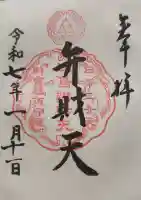 奉拝
弁財天
令和七年一月十二日